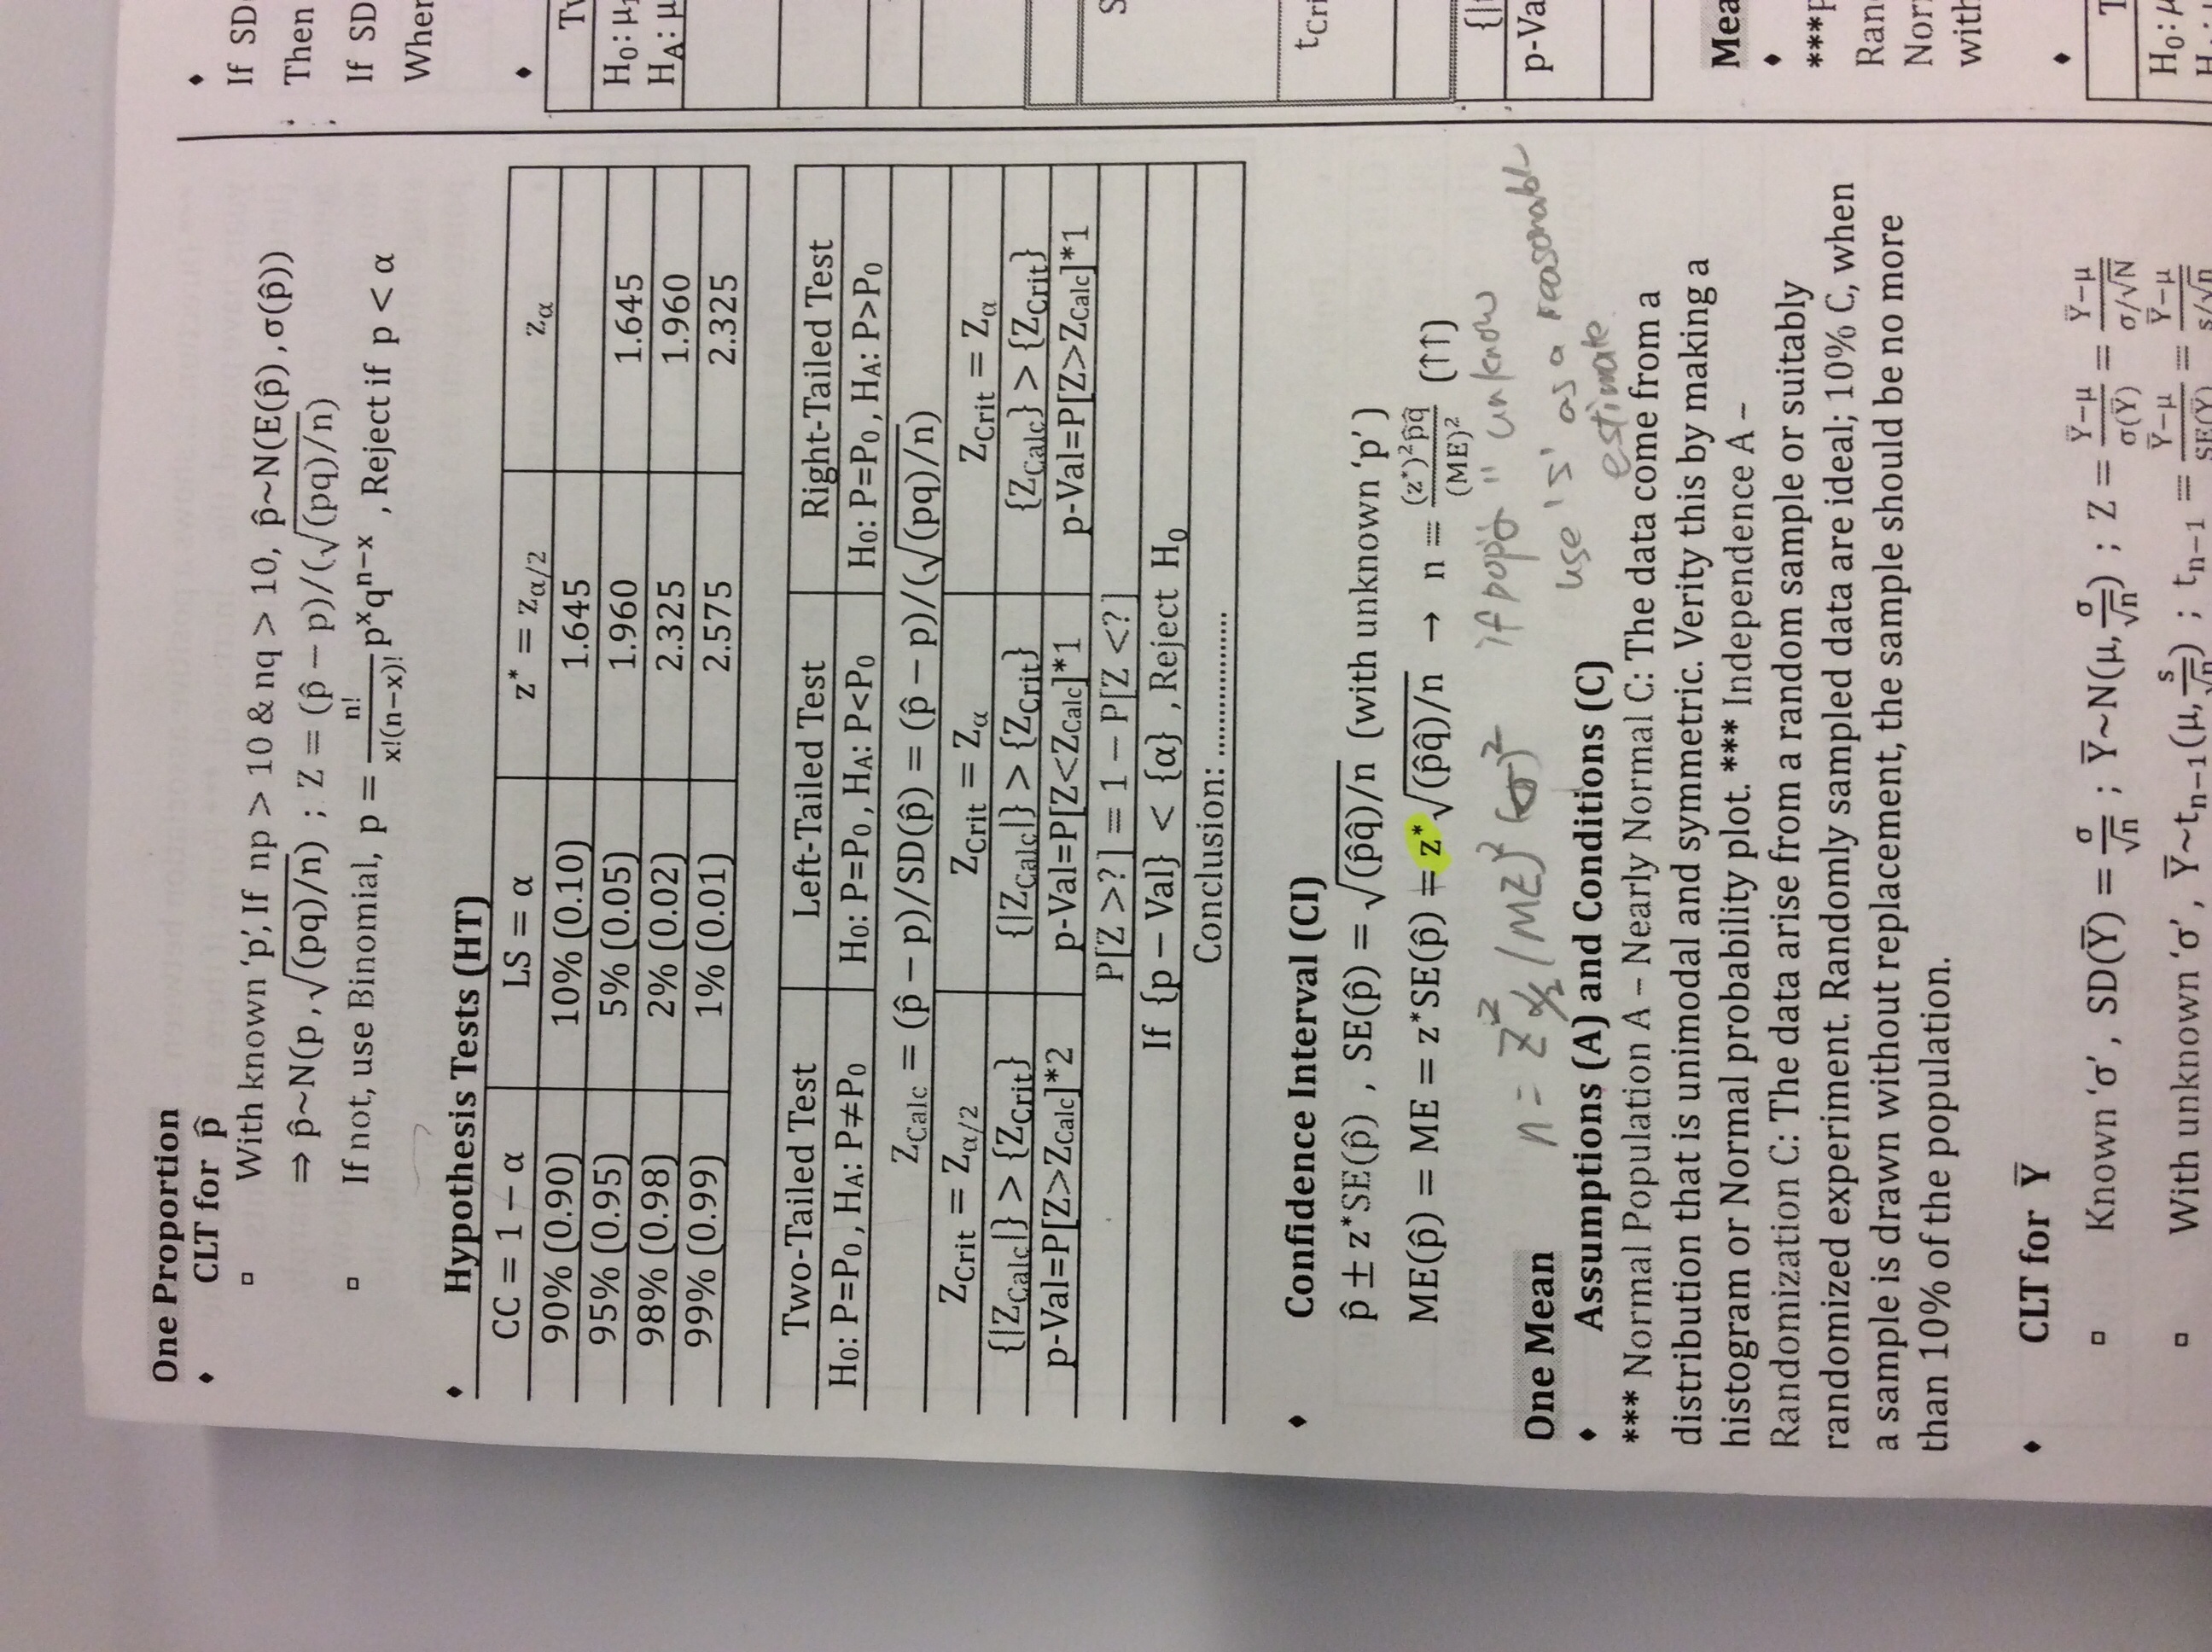 One Proportion
♦ CLT for p̂
▫ With known 'p', If np > 10 & nq > 10, p̂~N(E(p̂),σ(p̂))
⇒ p̂~N(p,√(pq)/n) ; Z = (p̂ − p)/(√(pq)/n)
▫ If not, use Binomial, p = n!/x!(n−x)! pˣqⁿ⁻ˣ , Reject if p < α
♦ Hypothesis Tests (HT)
CC = 1 − α LS = α z* = zα/2 zα
90% (0.90) 10% (0.10) 1.645
95% (0.95) 5% (0.05) 1.960 1.645
98% (0.98) 2% (0.02) 2.325 1.960
99% (0.99) 1% (0.01) 2.575 2.325
Two-Tailed Test Left-Tailed Test Right-Tailed Test
H₀: P=P₀ , HA: P≠P₀ H₀: P=P₀ , HA: P<P₀ H₀: P=P₀ , HA: P>P₀
ZCalc = (p̂ − p)/SD(p̂) = (p̂ − p)/(√(pq)/n)
ZCrit = Zα/2 ZCrit = Zα ZCrit = Zα
{|ZCalc|} > {ZCrit} {|ZCalc|} > {ZCrit} {ZCalc} > {ZCrit}
p-Val=P[Z>ZCalc]*2 p-Val=P[Z<ZCalc]*1 p-Val=P[Z>ZCalc]*1
P[Z >?] = 1 − P[Z <?]
If {p − Val} < {α} , Reject H₀
Conclusion: ...............
♦ Confidence Interval (CI)
p̂ ± z*SE(p̂) , SE(p̂) = √(p̂q̂)/n (with unknown 'p')
ME(p̂) = ME = z*SE(p̂) = z*√(p̂q̂)/n → n = (z*)²p̂q̂/(ME)² (↑↑)
if pop'n " unknow
use 's' as a reasonabl
estimate
One Mean
♦ Assumptions (A) and Conditions (C)
*** Normal Population A – Nearly Normal C: The data come from a
distribution that is unimodal and symmetric. Verity this by making a
histogram or Normal probability plot. *** Independence A –
Randomization C: The data arise from a random sample or suitably
randomized experiment. Randomly sampled data are ideal; 10% C, when
a sample is drawn without replacement, the sample should be no more
than 10% of the population.
♦ CLT for Y̅
▫ Known 'σ' , SD(Y̅) = σ/√n ; Y̅~N(μ,σ/√n) ; Z = Y̅−μ/σ(Y̅) = Y̅−μ/σ/√N
▫ With unknown 'σ' , Y̅~tn−1(μ,s/√n) ; tn−1 = Y̅−μ/SE(Y̅) = Y̅−μ/s/√n
♦
If SD
Then
If SD
Wher
♦
H₀: μ
HA: μ
tCri
p-Va
Mea
♦
***P
Ran
Nor
with
♦
H₀: μ